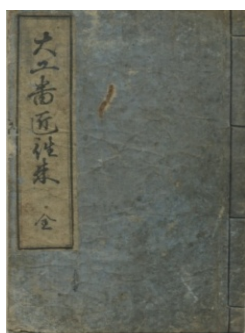 大工番匠往来 全